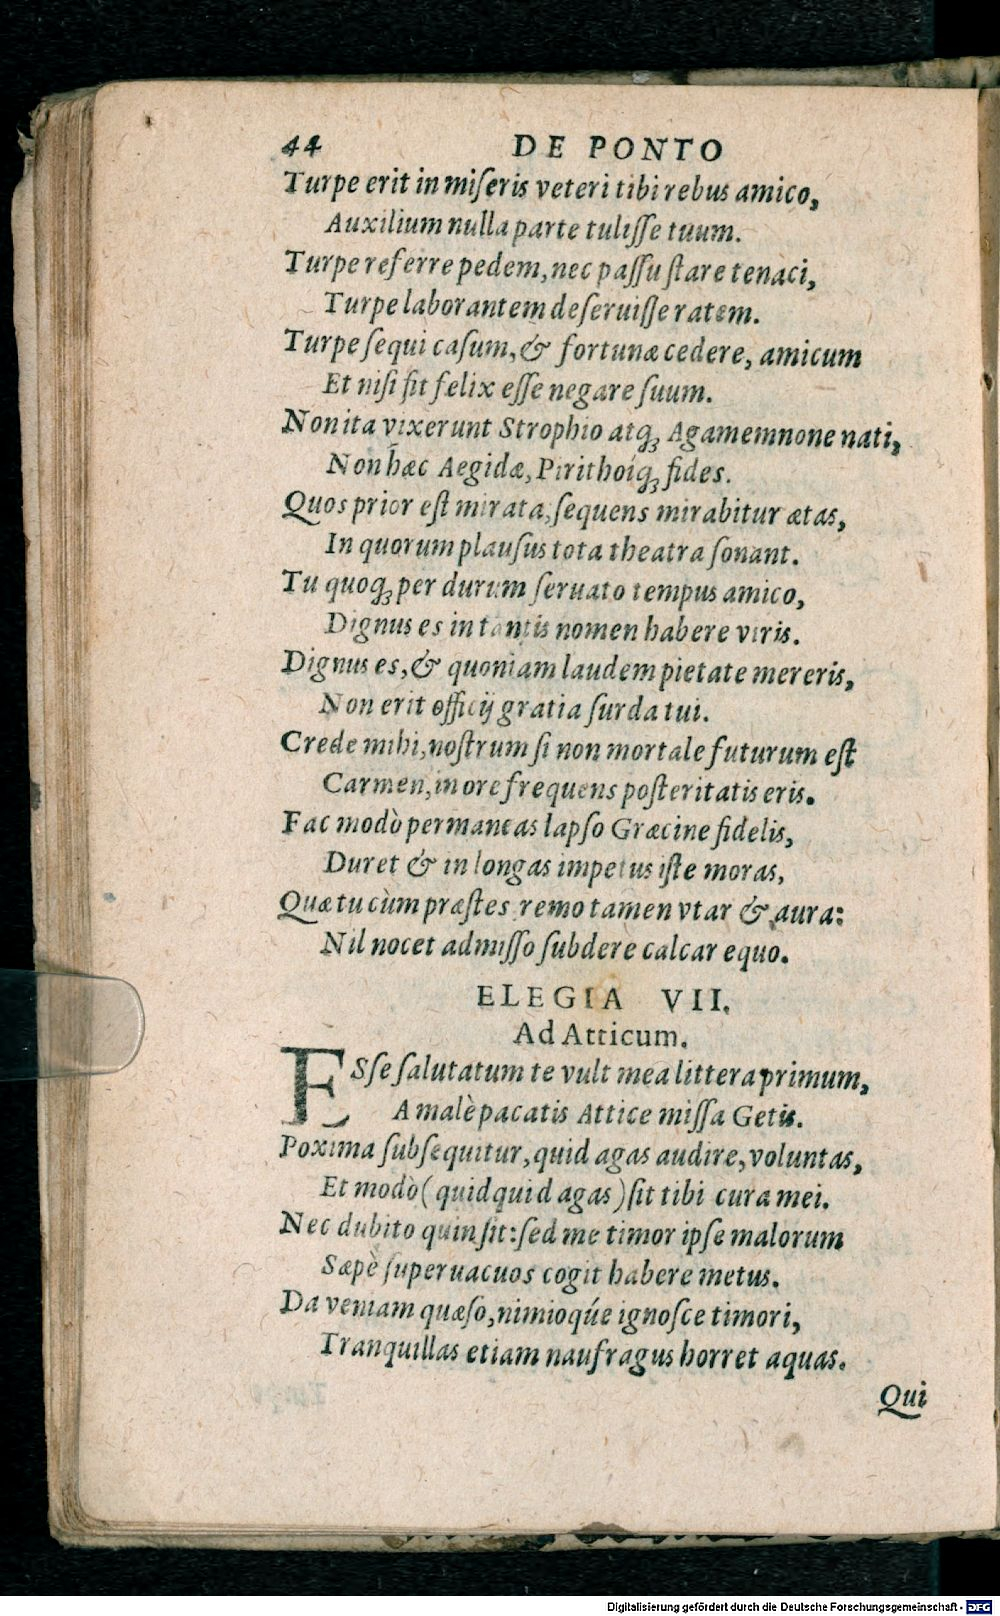 44 DE PONTO
Turpe erit in miſeris veteri tibi rebus amico,
Auxilium nulla parte tuliſſe tuum.
Turpe referre pedem, nec paſſu ſtare tenaci,
Turpe laborantem deſeruiſſe ratem.
Turpe ſequi caſum, & fortunæ cedere, amicum
Et niſi ſit felix eſſe negare ſuum.
Non ita vixerunt Strophio atq; Agamemnone nati,
Non hæc Aegidæ, Pirithoíq; fides.
Quos prior eſt mirata, ſequens mirabitur ætas,
In quorum plauſus tota theatra ſonant.
Tu quoq; per durum ſeruato tempus amico,
Dignus es in tantis nomen habere viris.
Dignus es, & quoniam laudem pietate mereris,
Non erit officij gratia ſurda tui.
Crede mihi, noſtrum ſi non mortale futurum eſt
Carmen, in ore frequens poſteritatis eris.
Fac modò permaneas lapſo Græcine fidelis,
Duret & in longas impetus iſte moras,
Quæ tu cùm præſtes remo tamen vtar & aura:
Nil nocet admiſſo ſubdere calcar equo.
ELEGIA VII.
Ad Atticum.
ESſe ſalutatum te vult mea littera primum,
A malè pacatis Attice miſſa Getis.
Poxima ſubſequitur, quid agas audire, voluntas,
Et modò (quidquid agas) ſit tibi cura mei.
Nec dubito quin ſit: ſed me timor ipſe malorum
Sæpè ſuperuacuos cogit habere metus.
Da veniam quæſo, nimioqúe ignoſce timori,
Tranquillas etiam naufragus horret aquas.
Qui
Digitalisierung gefördert durch die Deutsche Forschungsgemeinschaft - DFG